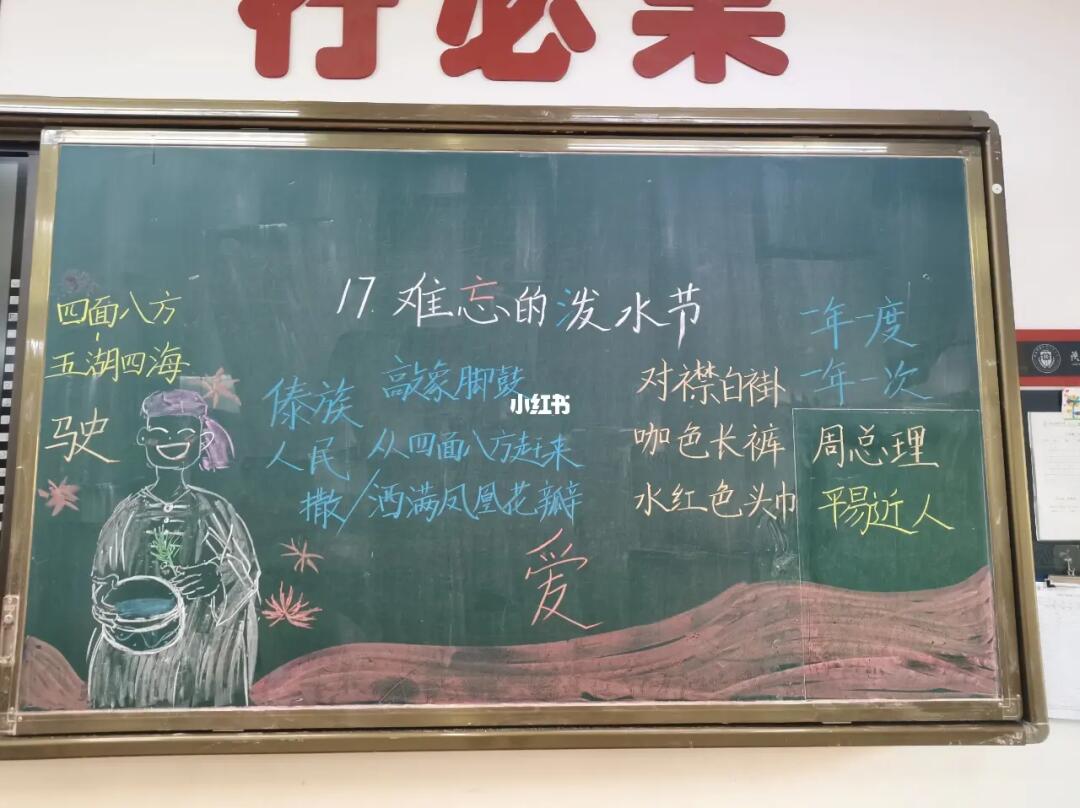 行必果
17.难忘的泼水节
四面八方
五湖四海
驶
傣族
人民
敲象脚鼓
从四面八方赶来
撒/洒满凤凰花瓣
爱
小红书
对襟白褂
咖色长裤
水红色头巾
一年一度
一年一次
周总理
平易近人